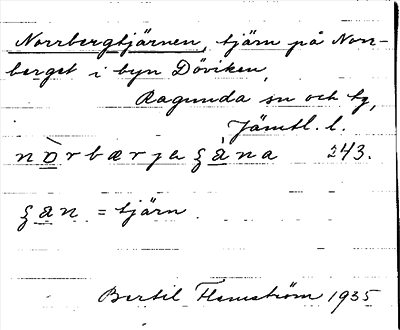 Norrbergtjärnen, tjärn på Norr-
berget i byn Döviken,
Ragunda sn och tg,
Jämtl. l.
243.
= tjärn
Bertil Flemström 1935